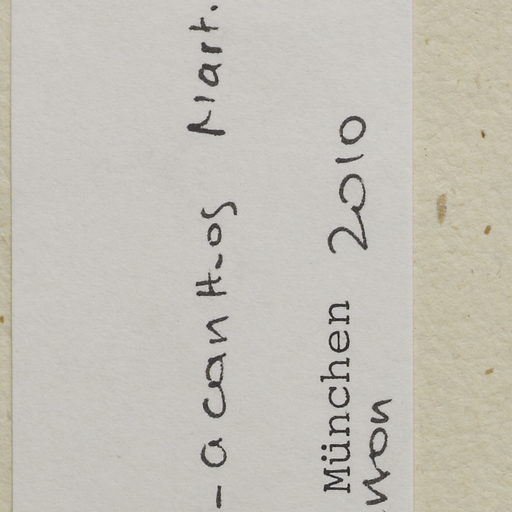 -acanthos Mart.
München 2010